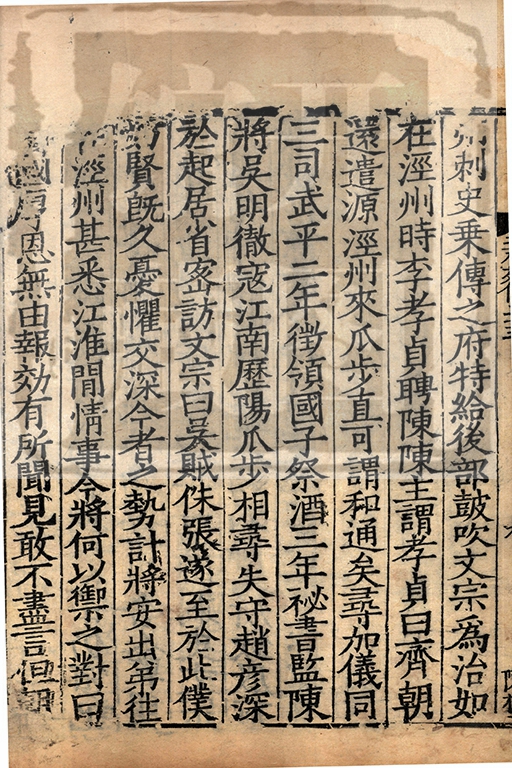 州刺史乗傳之府特給後部鼓吹文宗為治如
在涇州時李孝貞聘陳陳主謂孝貞曰齊朝
還遣源涇州來瓜步直可謂和通矣尋加儀同
三司武平二年徴領國子祭酒三年秘書監陳
將吴明徹寇江南歷陽瓜步相尋失守趙彦深
於起居省宻訪文宗曰吴賊侏張遂至於此僕
賢既久憂懼交深今者之勢計將安出弟往
涇州甚悉江淮間情事今將何以禦之對曰
國厚恩無由報効有所聞見敢不盡言但朝